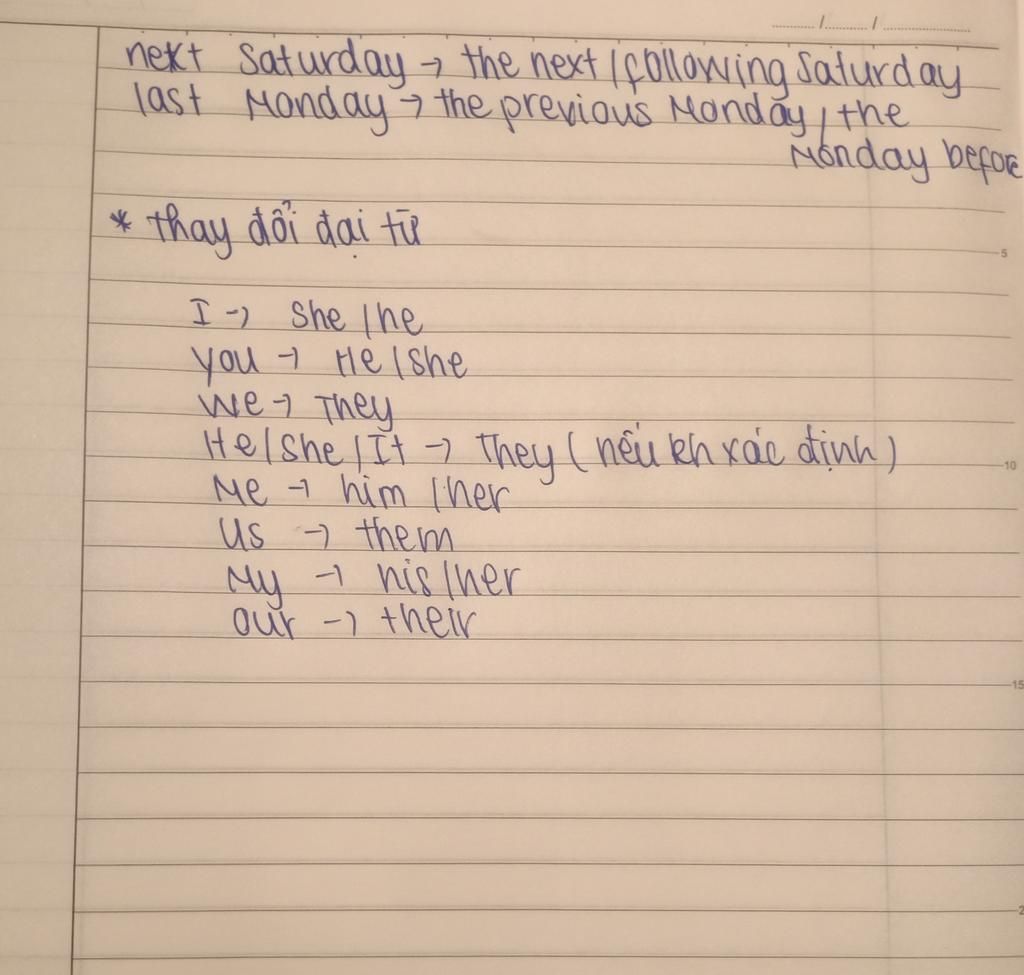 next Saturday → the next / following Saturday
last Monday → the previous Monday / the
Monday before
* thay đổi đại từ
I → She / he
you → He / she
We → They
He / She / It → They ( nếu kh xác định )
Me → him / her
Us → them
My → his / her
our → their
5
10
15
2